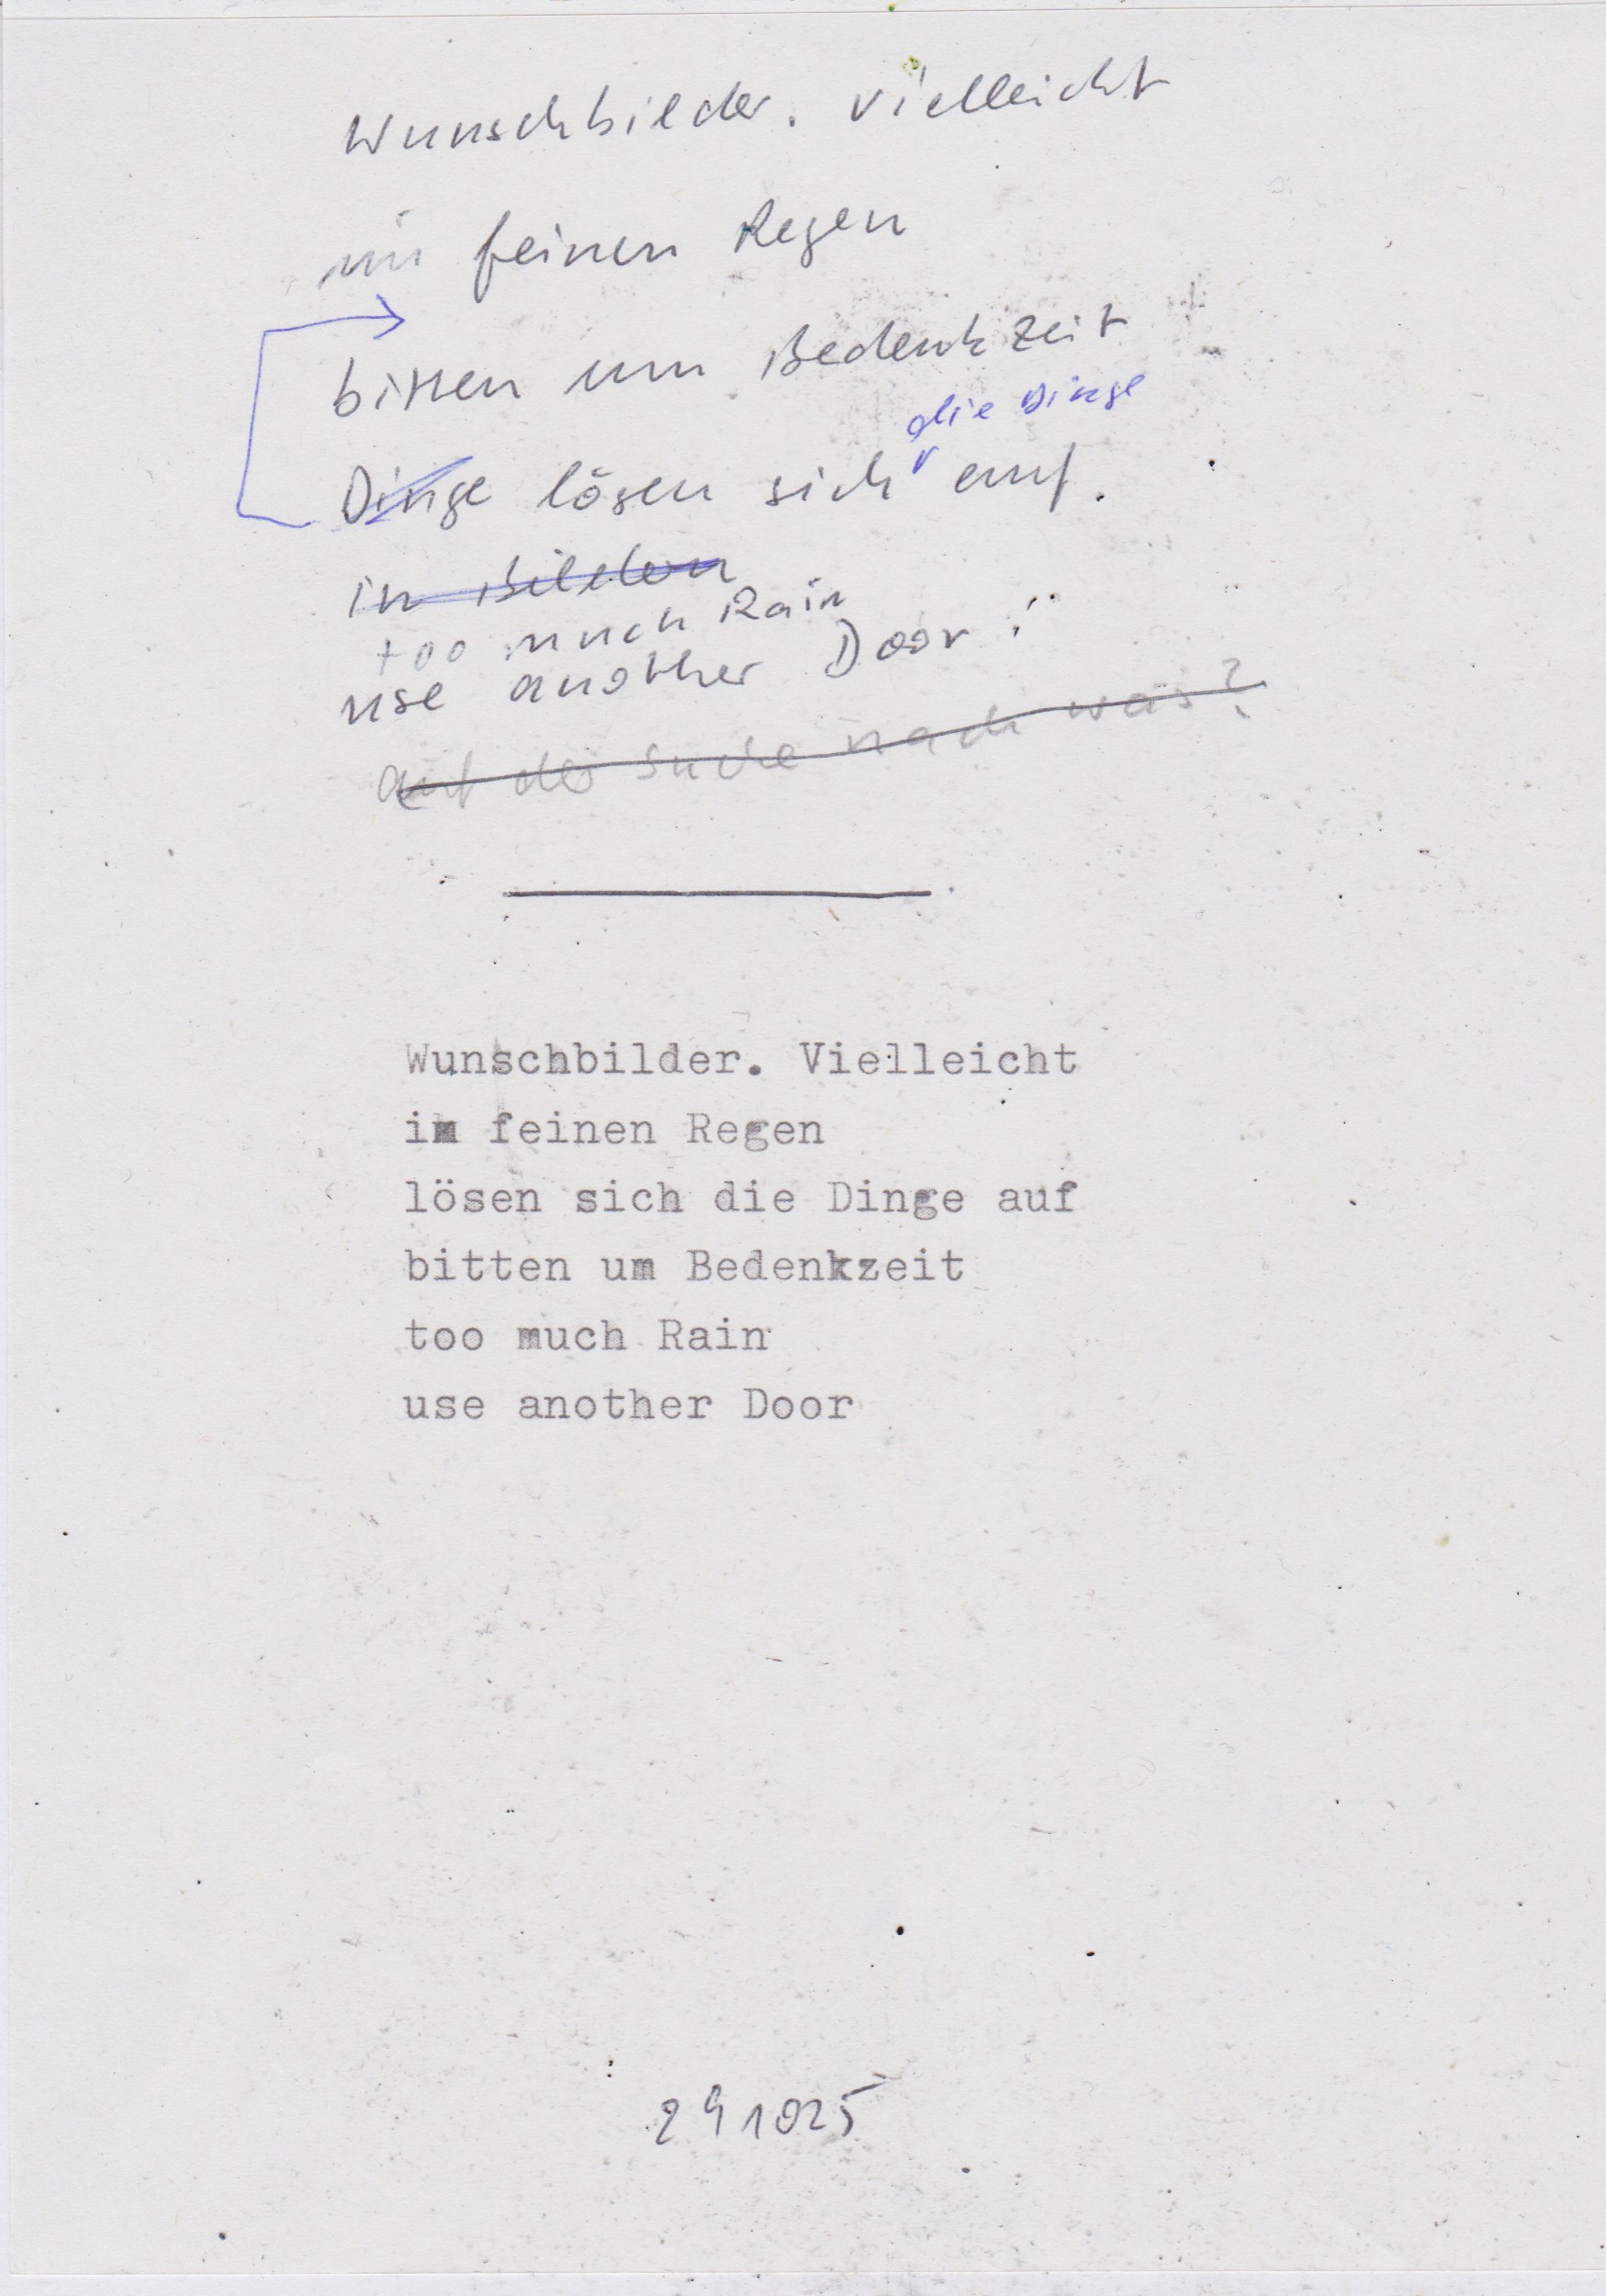 Wunschbilder. Vielleicht
im feinen Regen
bitten um Bedenkzeit
die Dinge
Dinge lösen sich auf.
in Bildern
too much Rain
use another Door!
auf der Suche nach was?
Wunschbilder. Vielleicht
im feinen Regen
lösen sich die Dinge auf
bitten um Bedenkzeit
too much Rain
use another Door
291025